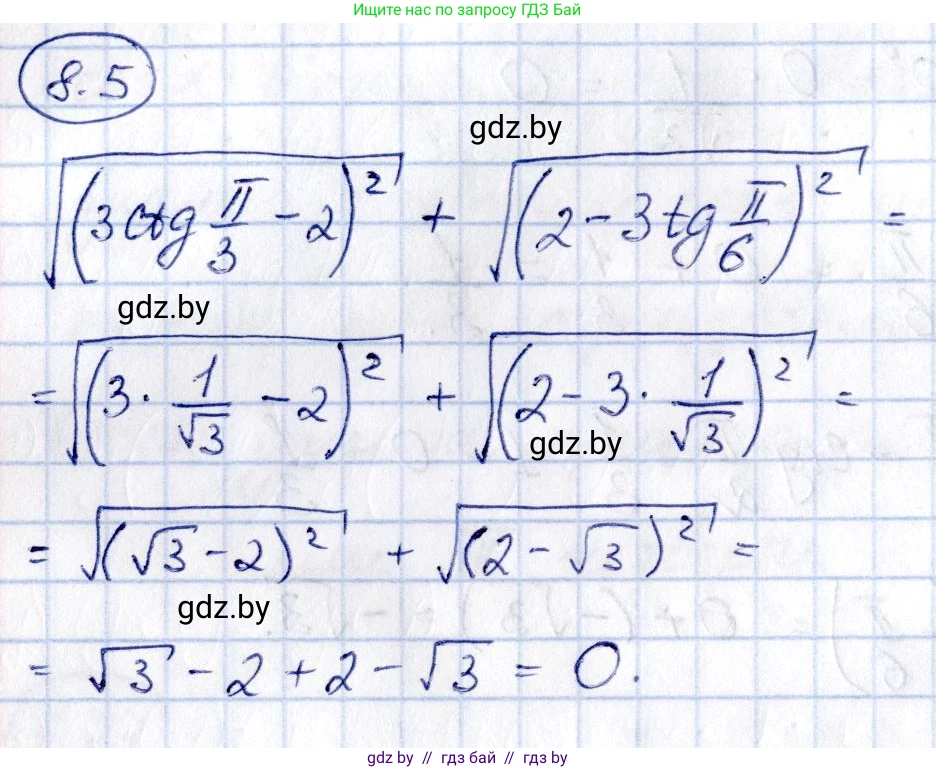 Ищите нас по запросу ГДЗ Бай
8.5
gdz.by
√(3ctg π/3 − 2)² + √(2 − 3tg π/6)² =
gdz.by
= √(3 · 1/√3 − 2)² + √(2 − 3 · 1/√3)² =
gdz.by
= √(√3 − 2)² + √(2 − √3)² =
gdz.by
= √3 − 2 + 2 − √3 = 0.
gdz.by // гдз бай // гдз by